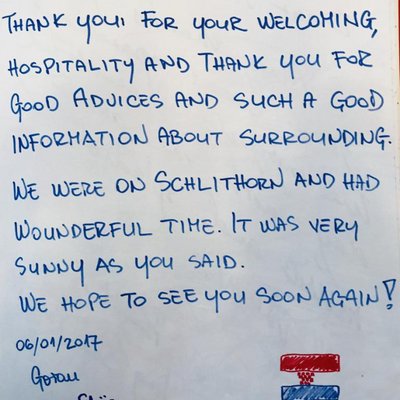 THANK YOU! FOR YOUR WELCOMING,
HOSPITALITY AND THANK YOU FOR
GOOD ADVICES AND SUCH A GOOD
INFORMATION ABOUT SURROUNDING.
WE WERE ON SCHLITHORN AND HAD
WOUNDERFUL TIME. IT WAS VERY
SUNNY AS YOU SAID.
WE HOPE TO SEE YOU SOON AGAIN!
06/01/2017
Goran